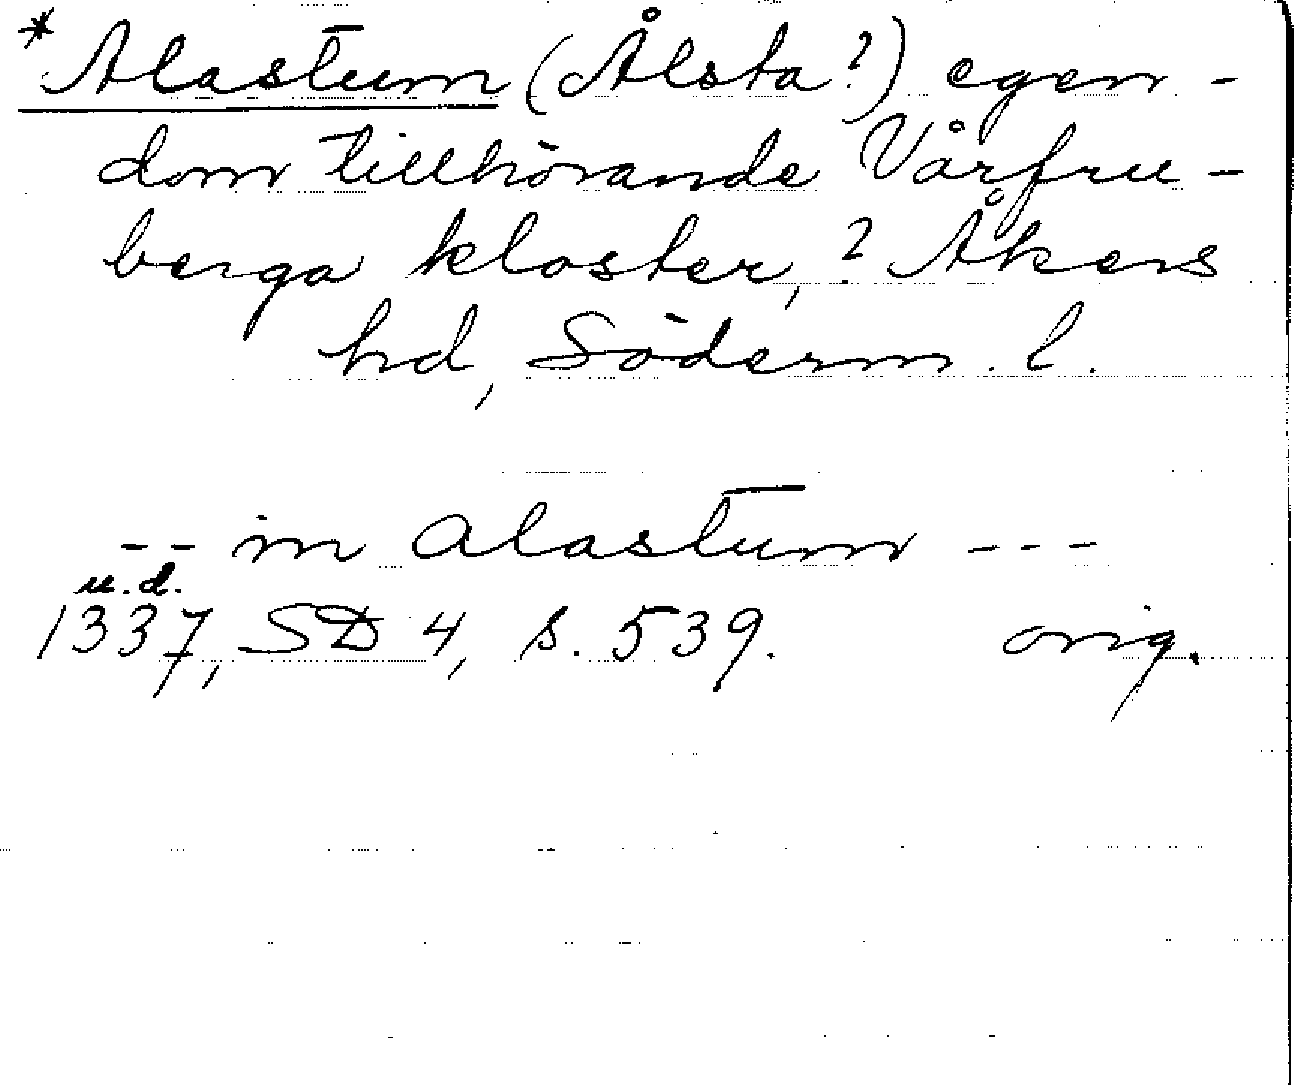 *Alastum (Ålsta?) egen-
dom tillhörande Vårfru-
berga kloster, ? Åkers
hd, Söderm. l.
-- in alastum ---
u.d.
1337, SD 4, s. 539. orig.